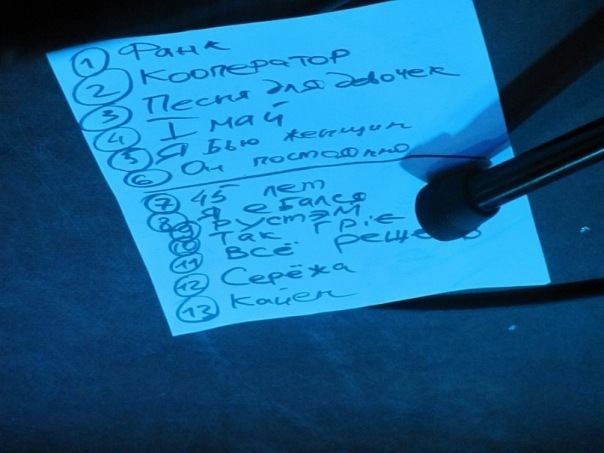 1 Фанк
2 Кооператор
3 Песня для девочек
4 I май
5 Я бью женщин
6 Он постоянно
7 45 лет
8 Я ебался
9 Рустэм
10 Так гріє
11 Всё
12 Серёжа
13 Кайен